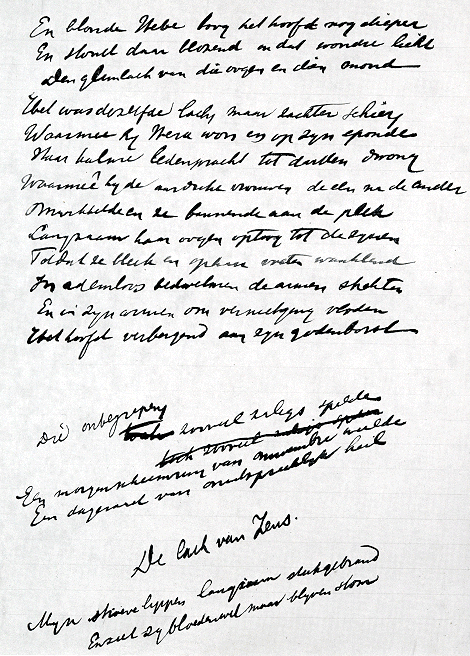 En blonde Hebe boog het hoofd nog dieper
En stond daar blozend in dat wondre licht
Den glimlach van die oogen en dien mond
Het was dezelfde lach, maar zachter schier
Waarmee hij Hera won en op zijn sponde
Haar kalme ledenpracht tot dulden dwong
Waarmeê hij de aardsche vrouwen de een na de ander
en ze bannende aan de plek
Langzaam haar oogen optoog tot de zijnen
Totdat ze bleek en op haar voeten wankelend
In ademloos bedwelmen de armen strekten
En in zijn armen om vernietiging
Het hoofd verbergend aan zijn godenborst
Die onbegrepen zooveel zaligs spelde
Een morgenschemering van
Een dageraad van onuitspreeklijk heil
De lach van Zeus.
Mijn stroeve lippen langzaam stukgebrand
En ziel zij bloeden wil maar blijven stom